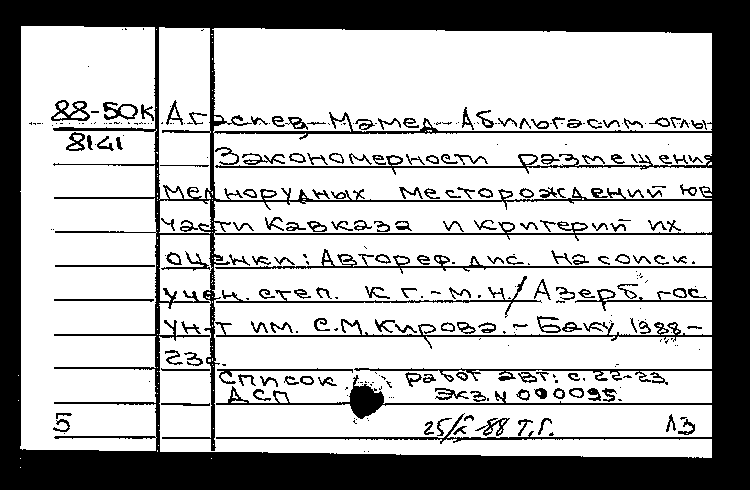 88-50к Агаспев, Мамед Абильгасим оглы
8141
Закономерности размещения
меднорудных месторождений юв
части Кавказа и критерий их
оценки: Автореф. дис. на соиск.
учен. степ. к г.-м.н/ Азерб. гос
ун-т им. С.М. Кирова. - Баку, 1988. -
23с.
Список работ авт: с. 22-23.
ДСП Экз. N 000095.
5 25/X-88 Т.Г. ЛЗ